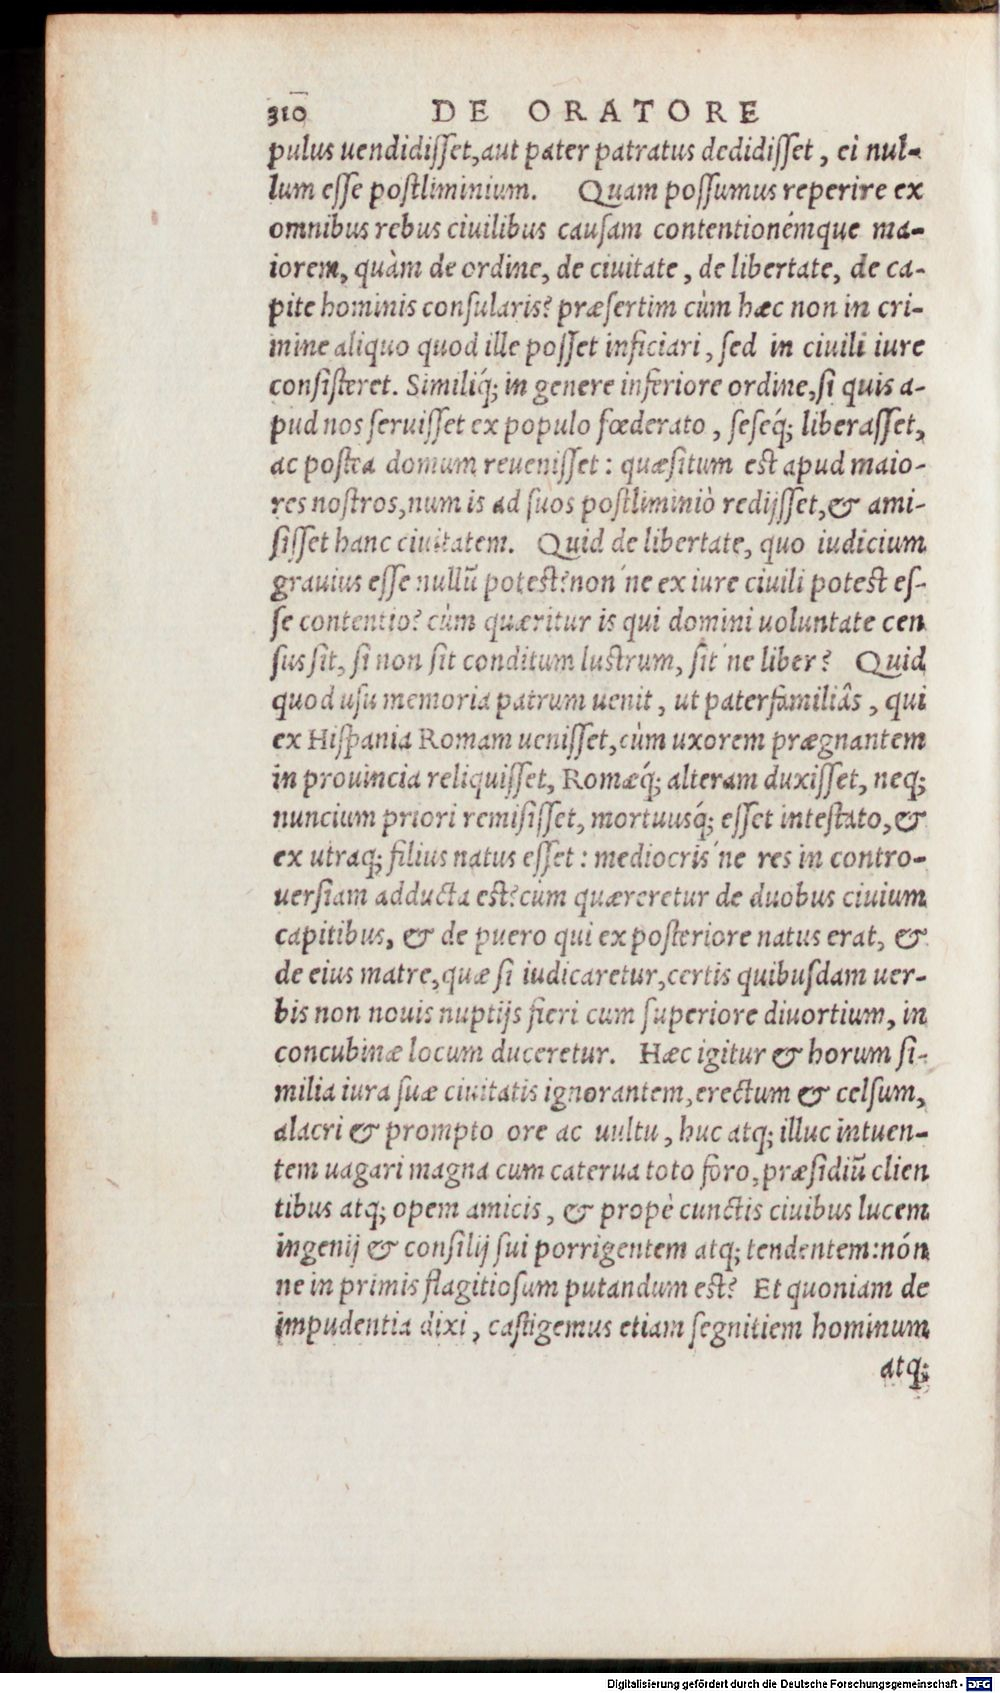 310 DE ORATORE
pulus uendidisset, aut pater patratus dedidisset, ei nul-
lum esse postliminium. Quam possumus reperire ex
omnibus rebus ciuilibus causam contentionémque ma-
iorem, quàm de ordine, de ciuitate, de libertate, de ca-
pite hominis consularis? præsertim cùm hæc non in cri-
mine aliquo quod ille posset inficiari, sed in ciuili iure
consisteret. Similiq́; in genere inferiore ordine, si quis a-
pud nos seruisset ex populo fœderato, seseq́; liberasset,
ac postea domum reuenisset: quæsitum est apud maio-
res nostros, num is ad suos postliminiò redijsset, & ami-
sisset hanc ciuitatem. Quid de libertate, quo iudicium
grauius esse nullũ potest? non´ne ex iure ciuili potest es-
se contentio? cùm quæritur is qui domini uoluntate cen
sus sit, si non sit conditum lustrum, sit´ne liber? Quid
quod usu memoria patrum uenit, ut paterfamiliâs, qui
ex Hispania Romam uenisset, cùm uxorem prægnantem
in prouincia reliquisset, Romæq́; alteram duxisset, neq;
nuncium priori remisisset, mortuusq́; esset intestato, &
ex utraq; filius natus esset: mediocris´ne res in contro-
uersiam adducta est? cùm quæreretur de duobus ciuium
capitibus, & de puero qui ex posteriore natus erat, &
de eius matre, quæ si iudicaretur, certis quibusdam uer-
bis non nouis nuptijs fieri cum superiore diuortium, in
concubinæ locum duceretur. Hæc igitur & horum si-
milia iura suæ ciuitatis ignorantem, erectum & celsum,
alacri & prompto ore ac uultu, huc atq; illuc intuen-
tem uagari magna cum caterua toto foro, præsidiũ clien
tibus atq; opem amicis, & propè cunctis ciuibus lucem
ingenij & consilij sui porrigentem atq; tendentem: nón
ne in primis flagitiosum putandum est? Et quoniam de
impudentia dixi, castigemus etiam segnitiem hominum
atq;
Digitalisierung gefördert durch die Deutsche Forschungsgemeinschaft - DFG